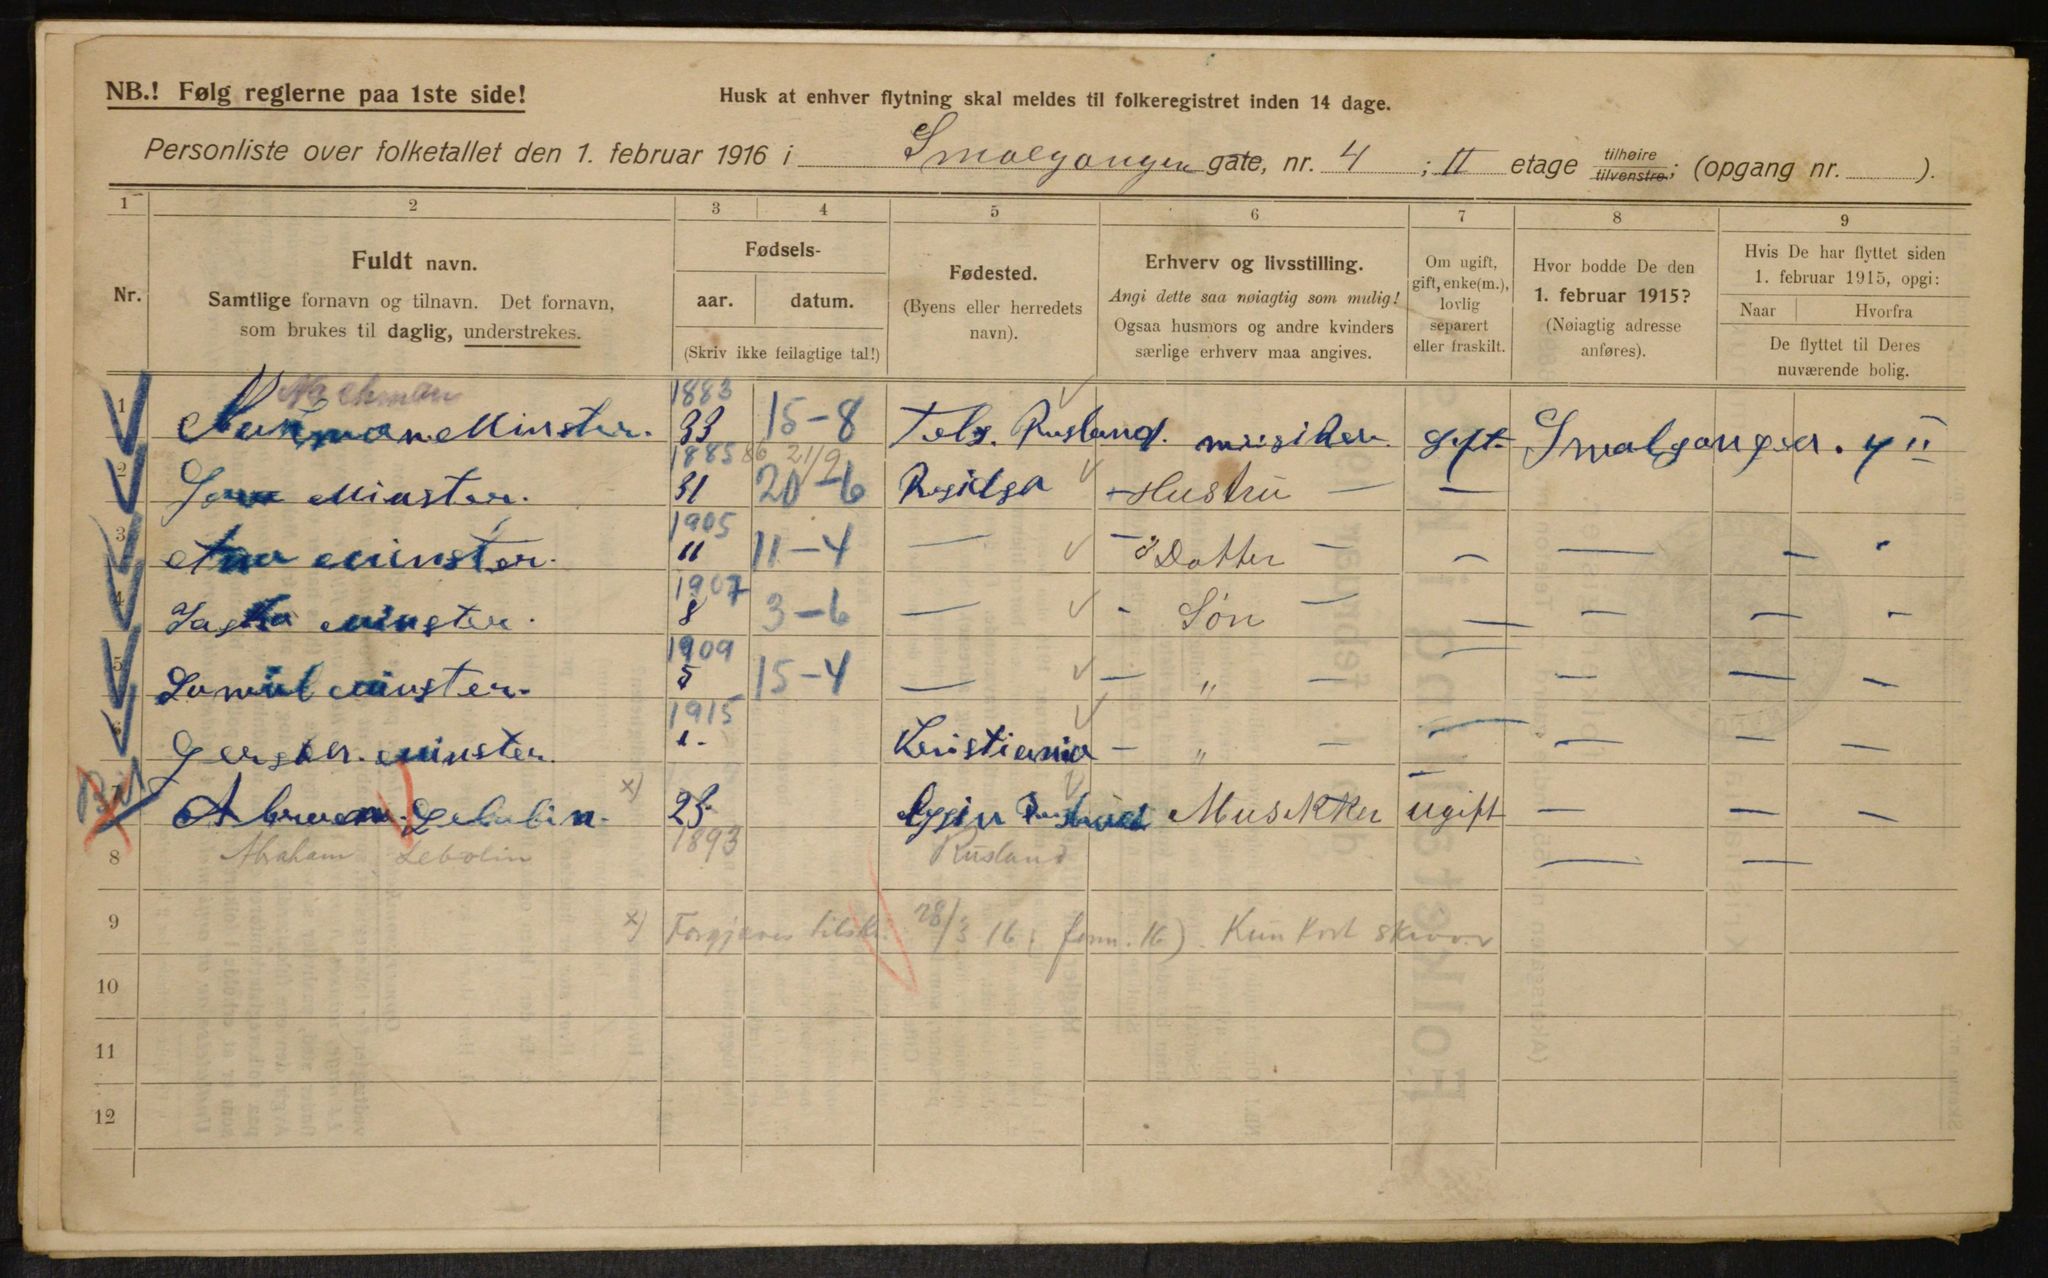 NB.! Følg reglerne paa 1ste side!
Husk at enhver flytning skal meldes til folkeregistret inden 14 dage.
Personliste over folketallet den 1. februar 1916 i Smalgangen gate, nr. 4 ; II etage tilhøire tilvenstre; (opgang nr. ).
1 2 3 4 5 6 7 8 9
Nr.
Fuldt navn.
Samtlige fornavn og tilnavn. Det fornavn,
som brukes til daglig, understrekes.
Fødsels-
aar. datum.
(Skriv ikke feilagtige tal!)
Fødested.
(Byens eller herredets
navn).
Erhverv og livsstilling.
Angi dette saa nøiagtig som mulig!
Ogsaa husmors og andre kvinders
særlige erhverv maa angives.
Om ugift,
gift, enke(m.),
lovlig
separert
eller fraskilt.
Hvor bodde De den
1. februar 1915?
(Nøiagtig adresse
anføres).
Hvis De har flyttet siden
1. februar 1915, opgi:
Naar Hvorfra
De flyttet til Deres
nuværende bolig.
Nachman 1883
1 Minster. 33 15-8 Rusland. musiker gift Smalgangen. 4 II
1885 86 21/9
2 Minster. 31 20-6 - Hustru - -
1905
3 Minster. 11 11-4 - - Datter - - - - "
1907
4 Minster. 8 3-6 - - Søn - - - - -
1909
5 Minster. 5 15-4 - - " - - - - -
1915
6 Minster. 1. Kristiania - " - - - - -
7 Lebolin. x) 23 Musikker ugift - - -
8 Abraham Lebolin 1893 Rusland - -
9 x) Forgjæves 28/3 16 (fonn. 16). Kun Kort
10
11
12